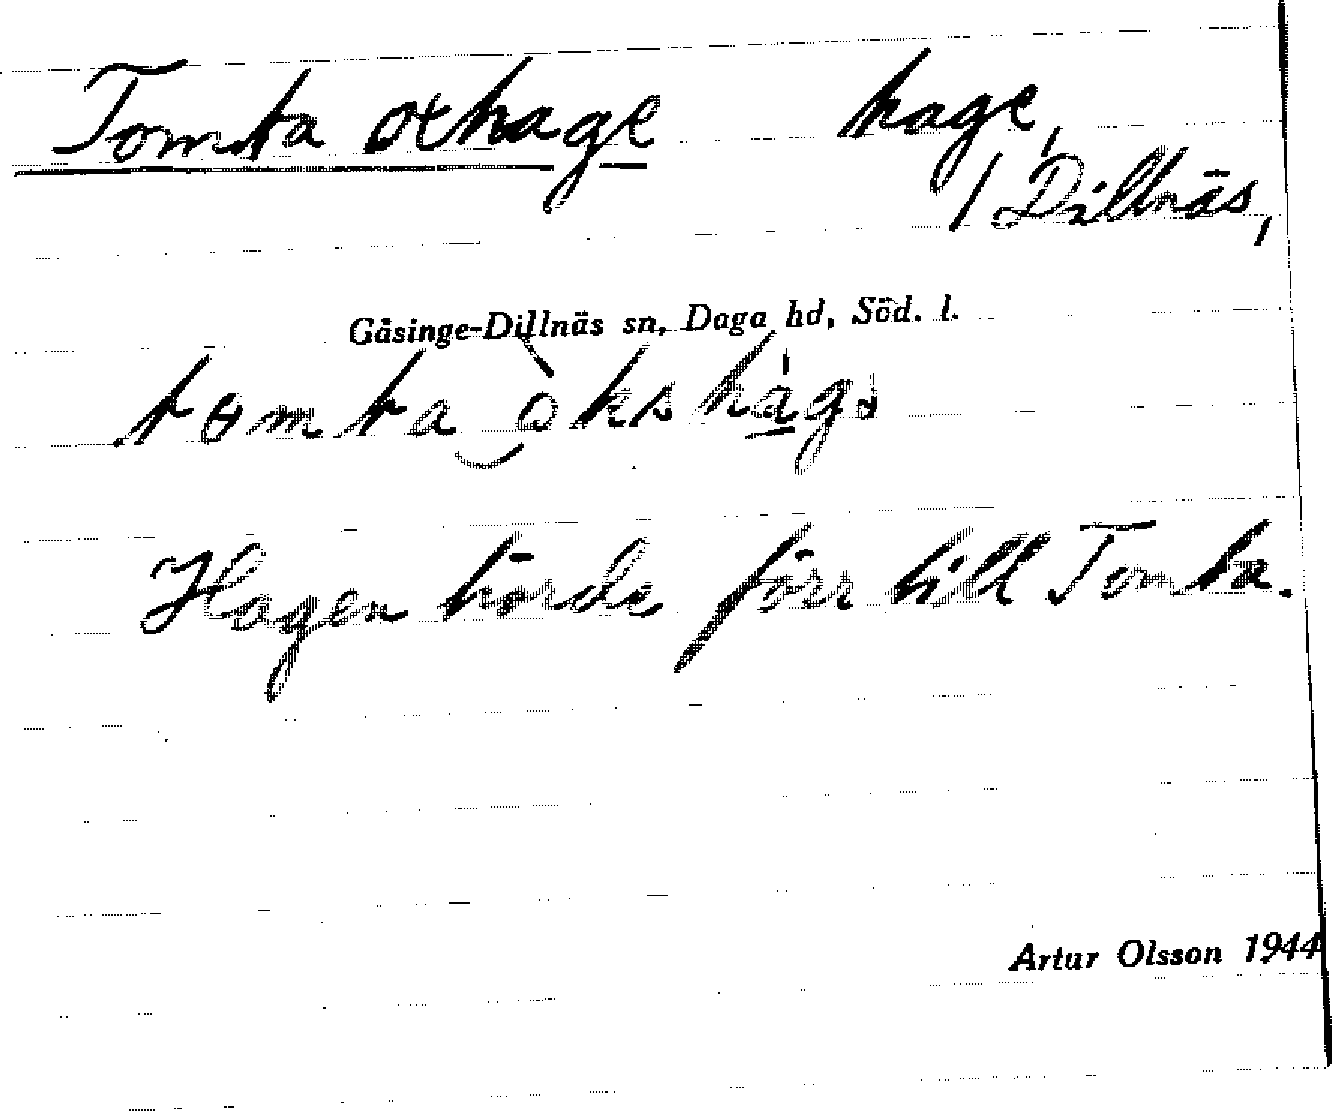 Tomta oxhage hage,
/ Dillnäs,
Gåsinge-Dillnäs sn, Daga hd, Söd. l.
tɵmta òkshágə
Hagen hörde förr till Tomta.
Artur Olsson 1944